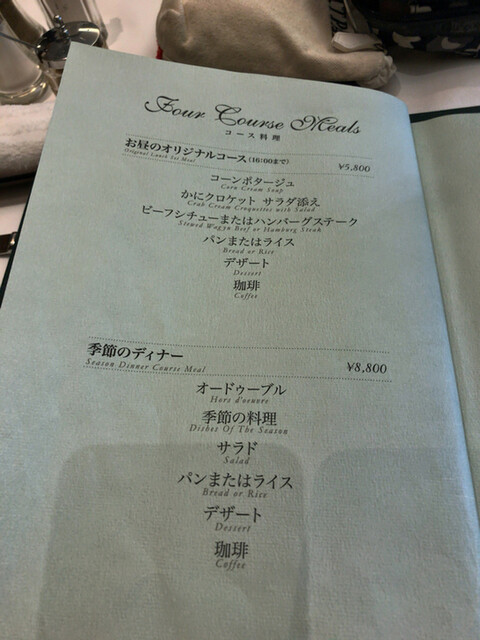 Four Course Meals
コース料理
お昼のオリジナルコース(16:00まで) ¥5,800
Original Lunch Set Meal
コーンポタージュ
Corn Cream Soup
かにクロケット サラダ添え
Crab Cream Croquettes with Salad
ビーフシチューまたはハンバーグステーク
Stewed Wagyu Beef or Hamburg Steak
パンまたはライス
Bread or Rice
デザート
Dessert
珈琲
Coffee
季節のディナー ¥8,800
Season Dinner Course Meal
オードゥーブル
Hors d'oeuvre
季節の料理
Dishes Of The Season
サラド
Salad
パンまたはライス
Bread or Rice
デザート
Dessert
珈琲
Coffee